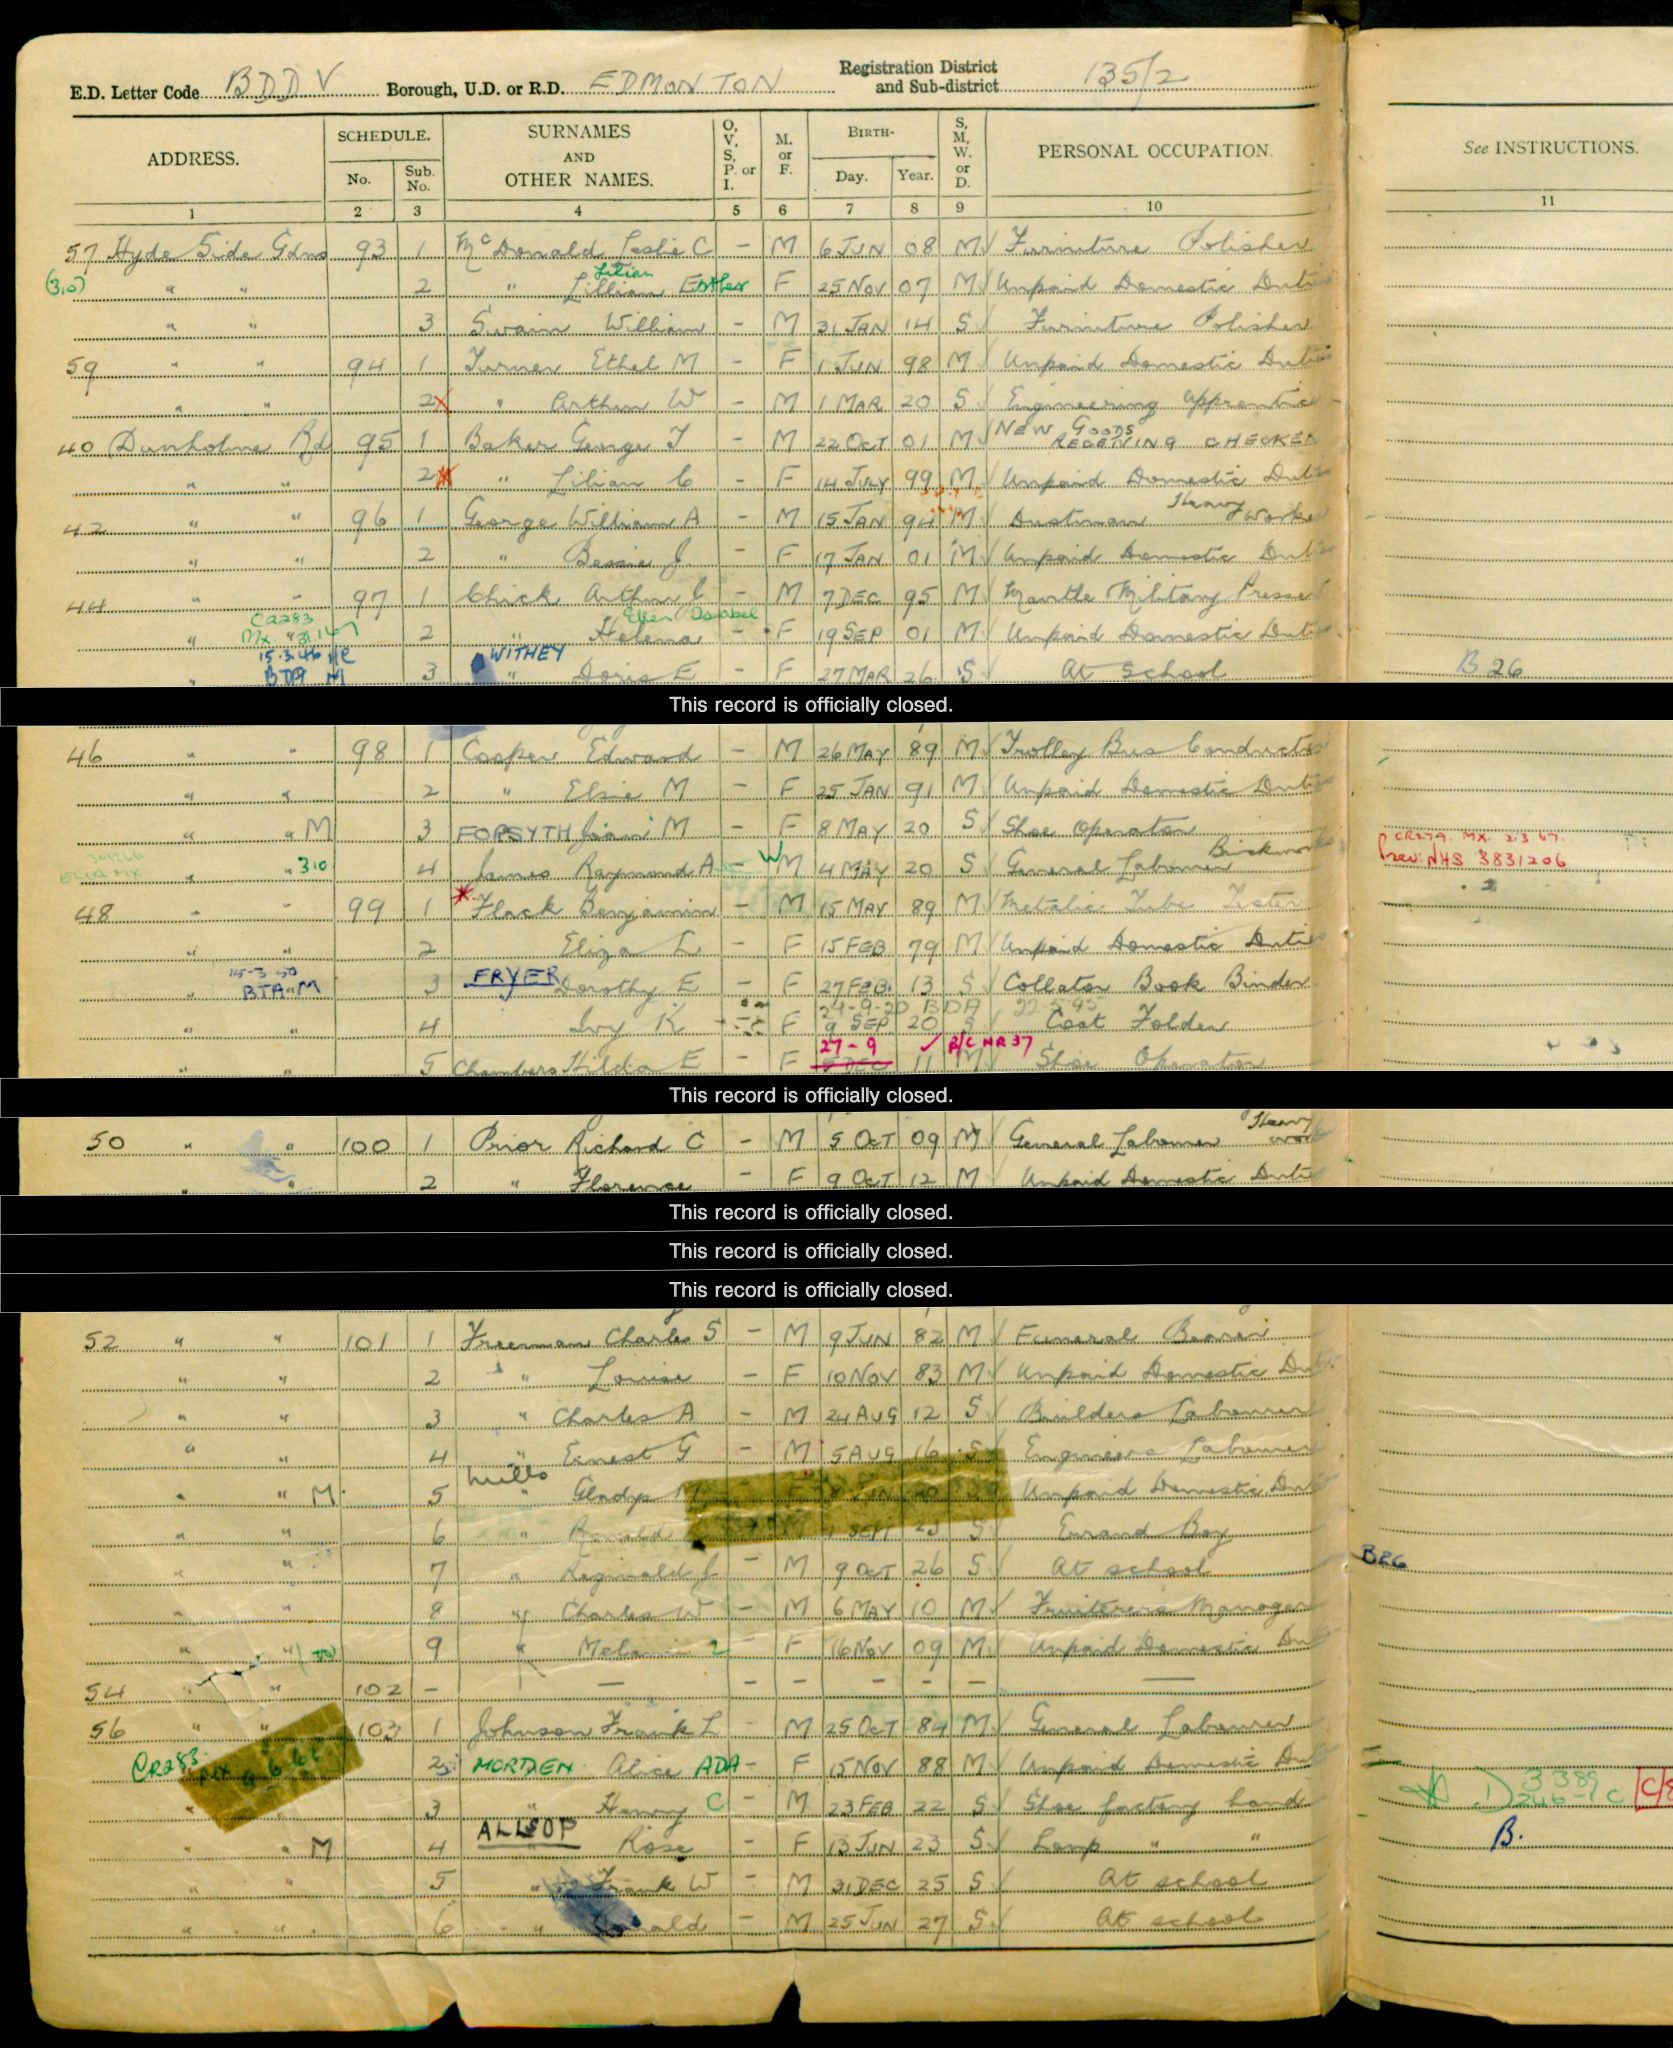 E.D. Letter Code BDDV Borough, U.D. or R.D. EDMONTON Registration District and Sub-district 135/2
ADDRESS. SCHEDULE. No. Sub. No. SURNAMES AND OTHER NAMES. O, V, S, P. or I. M. or F. BIRTH- Day. Year. S, M, W. or D. PERSONAL OCCUPATION. See INSTRUCTIONS.
1 2 3 4 5 6 7 8 9 10 11
57 Hyde Side Gdns 93 1 McDonald Leslie C - M 6 JUN 08 M Furniture Polisher
(3.0) " " 2 " Lillian Lilian Esther F 25 NOV 07 M Unpaid Domestic Duties
" " 3 Swain William - M 31 JAN 14 S Furniture Polisher
59 " " 94 1 Turner Ethel M - F 1 JUN 98 M Unpaid Domestic Duties
" " 2 " Arthur W - M 1 MAR 20 S Engineering Apprentice
40 Dunholme Rd 95 1 Baker George T - M 22 OCT 01 M NEW GOODS RECEIVING CHECKER
" " 2 " Lilian C - F 14 JULY 99 M Unpaid Domestic Duties
42 " " 96 1 George William A - M 15 JAN 94 M Dustman Heavy Worker
" " 2 " Bessie J - F 17 JAN 01 M Unpaid Domestic Duties
44 " " 97 1 Chick Arthur C - M 7 DEC 95 M Mantle Military Presser
" CR283 MX 2 " Helena Ellen Isabel - F 19 SEP 01 M Unpaid Domestic Duties
" 15.3.46 BTA M 3 WITHEY " Doris E - F 27 MAR 26 S At School B 26
This record is officially closed.
46 " " 98 1 Cooper Edward - M 26 MAY 89 M Trolley Bus Conductor
" " 2 " Elsie M - F 25 JAN 91 M Unpaid Domestic Duties
" " M 3 FORSYTH M - F 8 MAY 20 S Shoe Operator
" " 3.0 4 James Raymond A - M 4 MAY 20 S General Labourer Brickworks CR279. MX. 2.3.67. Prev: NHS 3831206
48 " " 99 1 Flack Benjamin - M 15 MAY 89 M Metalic Tube Tester
" " 2 Eliza L - F 15 FEB 79 M Unpaid Domestic Duties
" 15-3-50 BTA M 3 FRYER Dorothy E - F 27 FEB 13 S Collator Book Binder
" " 4 Ivy K F 9 SEP 20 S 24-9-20 BDA 22-5-45 Coat Folder
" " 5 Chambers Hilda E - F 5 DEC 27-9 11 M B/C NR 37 Shoe Operator
This record is officially closed.
50 " " 100 1 Prior Richard C - M 5 OCT 09 M General Labourer Heavy work
" " 2 " Florence - F 9 OCT 12 M Unpaid Domestic Duties
This record is officially closed.
This record is officially closed.
This record is officially closed.
52 " " 101 1 Freeman Charles S - M 9 JUN 82 M Funeral Bearer
" " 2 " Louise - F 10 NOV 83 M Unpaid Domestic Duties
" " 3 " Charles A - M 24 AUG 12 S Builders Labourer
" " 4 " Ernest G - M 5 AUG 16 S Engineers Labourer
" " M 5 Mills " Gladys M F JUN S Unpaid Domestic Duties
" " 6 " Ronald SEPT 23 S Errand Boy
" " 7 " Reginald J - M 9 OCT 26 S At school B26
" " 8 " Charles W - M 6 MAY 10 M Fruiterers Manager
" " 9 " F 16 NOV 09 M Unpaid Domestic Duties
54 " " 102 - - - - - - - -
56 " " 103 1 Johnson Frank L - M 25 OCT 84 M General Labourer
CR283 2 MORDEN Alice ADA - F 15 NOV 88 M Unpaid Domestic Duties
" " 3 " Henry C - M 23 FEB 22 S Shoe factory hand
" " M 4 ALLSOP " Rose - F 13 JUN 23 S Lamp " " B.
" " 5 " Frank W - M 31 DEC 25 S At school
" " 6 " - M 25 JUN 27 S At school